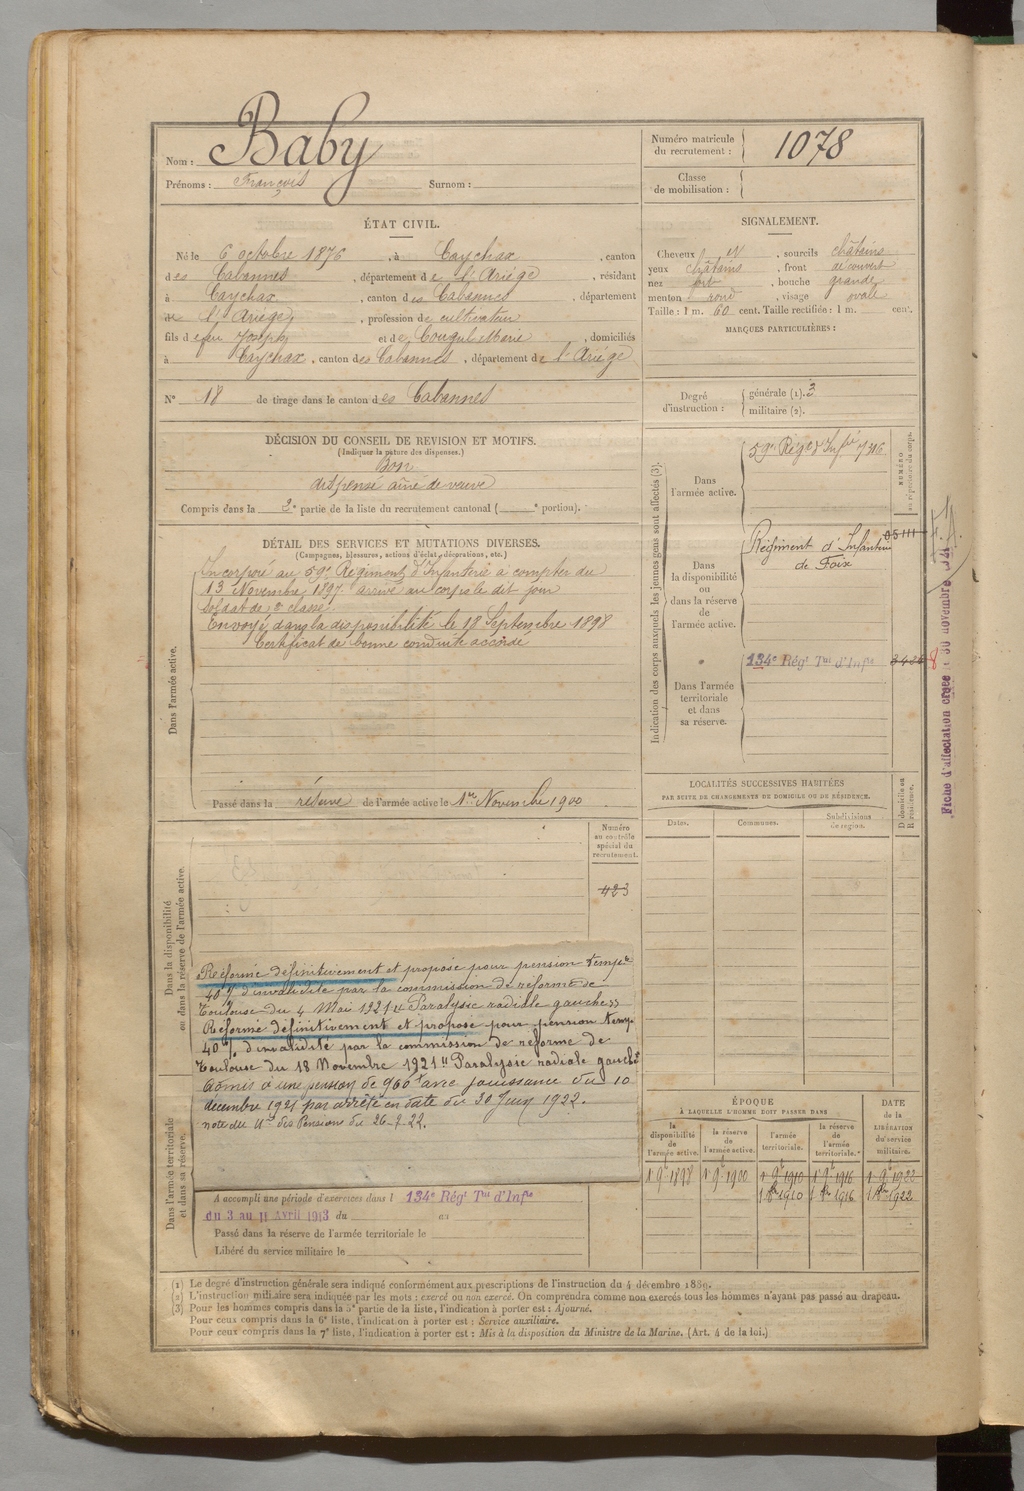 Nom : Baby
Prénoms : François Surnom :
Numéro matricule du recrutement : 1078
Classe de mobilisation :
ÉTAT CIVIL.
Né le 6 octobre 1876, à Caychax, canton
des Cabannes, département de l'Ariège, résidant
à Caychax, canton des Cabannes, département
de l'Ariège, profession de cultivateur
fils de feu Joseph et de Cougul Marie, domiciliés
à Caychax, canton des Cabannes, département de l'Ariège
N° 18 de tirage dans le canton des Cabannes
SIGNALEMENT.
Cheveux N, sourcils châtains
yeux châtains, front découvert
nez fort, bouche grande
menton rond, visage ovale
Taille : 1 m. 60 cent. Taille rectifiée : 1 m. cent.
MARQUES PARTICULIÈRES :
Degré d'instruction : générale (1). 3
militaire (2).
DÉCISION DU CONSEIL DE REVISION ET MOTIFS.
(Indiquer la nature des dispenses.)
Bon
dispensé aîné de veuve
Compris dans la 2e partie de la liste du recrutement cantonal ( e portion).
DÉTAIL DES SERVICES ET MUTATIONS DIVERSES.
(Campagnes, blessures, actions d'éclat, décorations, etc.)
Dans l'armée active.
Incorporé au 59e Régiment d'Infanterie à compter du
13 Novembre 1897 arrivé au corps le dit jour
soldat de 2e classe
Envoyé dans la disponibilité le 18 Septembre 1898
Certificat de bonne conduite accordé
Passé dans la réserve de l'armée active le 1er Novembre 1900
Indication des corps auxquels les jeunes gens sont affectés (3).
NUMÉRO au répertoire du corps.
Dans l'armée active.
59e Régt d'Infie 7316
Dans la disponibilité ou dans la réserve de l'armée active.
Régiment d'Infanterie 05111
de Foix
Dans l'armée territoriale et dans sa réserve.
134e Régt Tal d'Infie
8
F.A.
Fiche d'affectation créée le 30 novembre 1914
LOCALITÉS SUCCESSIVES HABITÉES
PAR SUITE DE CHANGEMENTS DE DOMICILE OU DE RÉSIDENCE.
Dates. Communes. Subdivisions de région. D domicile ou R résidence.
Dans la disponibilité ou dans la réserve de l'armée active.
Numéro au contrôle spécial du recrutement.
423
Réformé définitivement et proposé pour pension tempre
40% d'invalidité par la commission de réforme de
Toulouse du 4 Mai 1921 "Paralysie radiale gauche"
Réformé définitivement et proposé pour pension temp.
40% d'invalidité par la commission de réforme de
Toulouse du 18 Novembre 1921 "Paralysie radiale gauche"
Admis à une pension de 960f avec jouissance du 10
décembre 1921 par arrêté en date du 30 Juin 1922.
note du des Pensions du 26-7-22.
Dans l'armée territoriale et dans sa réserve.
A accompli une période d'exercices dans l 134e Régt Tal d'Infie
du 3 au 11 Avril 1913 du au
Passé dans la réserve de l'armée territoriale le
Libéré du service militaire le
ÉPOQUE
À LAQUELLE L'HOMME DOIT PASSER DANS
DATE de la LIBÉRATION du service militaire.
la disponibilité de l'armée active. la réserve de l'armée active. l'armée territoriale. la réserve de l'armée territoriale.
1 9bre 1898 1 9bre 1900 1 9bre 1910 1 9bre 1916 1 9bre 1922
1 8bre 1910 1 8bre 1916 1 8bre 1922
(1) Le degré d'instruction générale sera indiqué conformément aux prescriptions de l'instruction du 4 décembre 1889.
(2) L'instruction militaire sera indiquée par les mots : exercé ou non exercé. On comprendra comme non exercés tous les hommes n'ayant pas passé au drapeau.
(3) Pour les hommes compris dans la 5e partie de la liste, l'indication à porter est : Ajourné.
Pour ceux compris dans la 6e liste, l'indication à porter est : Service auxiliaire.
Pour ceux compris dans la 7e liste, l'indication à porter est : Mis à la disposition du Ministre de la Marine. (Art. 4 de la loi.)